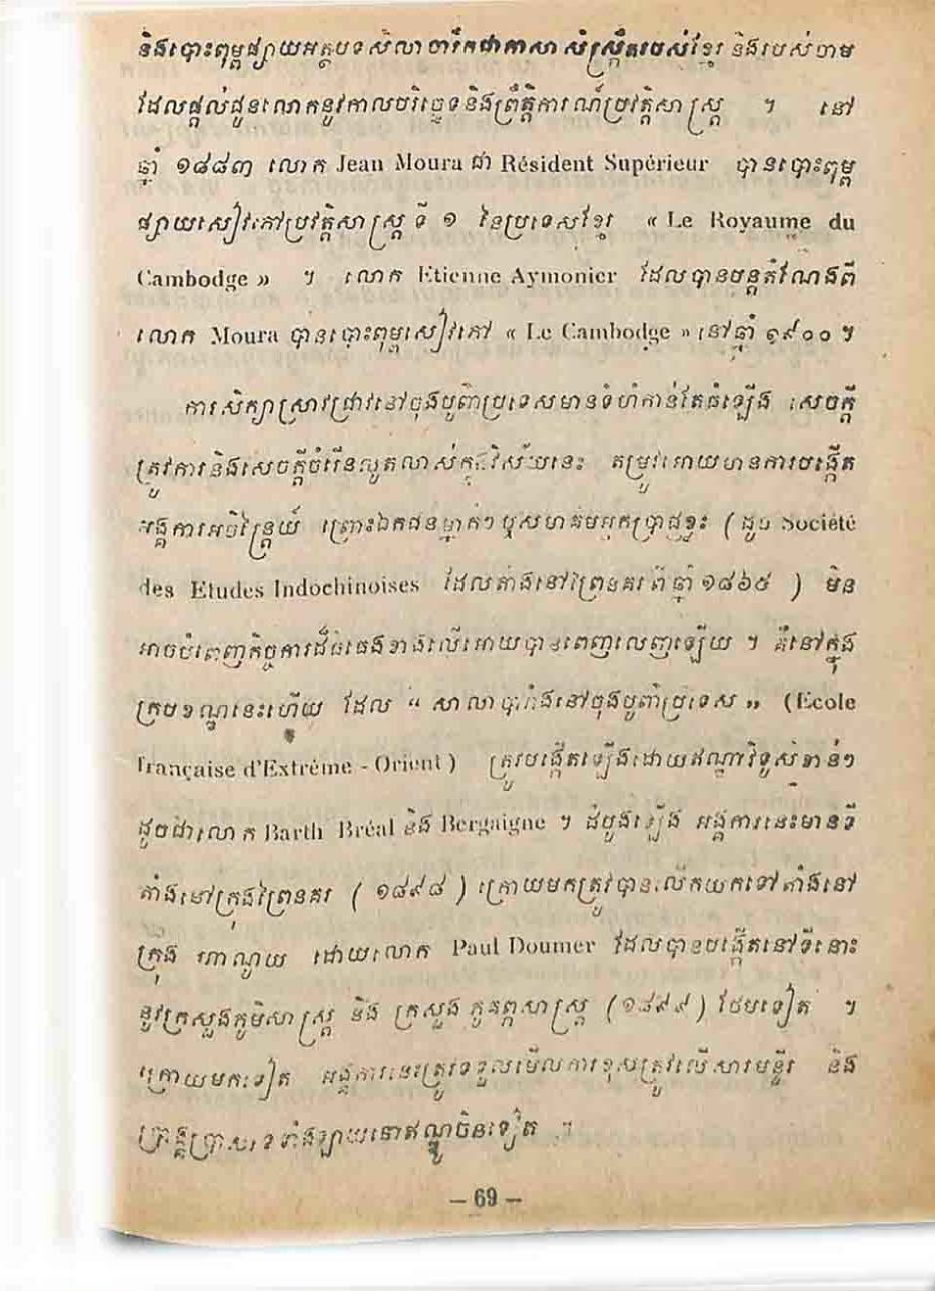 និងបោះពុម្ពផ្សាយអត្ថបទសិលាចារឹកជាភាសាសំស្រ្កឹតរបស់ខ្មែរ និងរបស់ចាម
ដែលផ្តល់ជូនលោកនូវកាលបរិច្ឆេទនិងព្រឹត្តិការណ៍ប្រវត្តិសាស្ត្រ ។ នៅ
ឆ្នាំ ១៨៨៣ លោក Jean Moura ជា Résident Supérieur បានបោះពុម្ព
ផ្សាយសៀវភៅប្រវត្តិសាស្ត្រ ទី ១ នៃប្រទេសខ្មែរ « Le Royaume du
Cambodge » ។ លោក Etienne Aymonier ដែលបានបន្តតំណែងពី
លោក Moura បានបោះពុម្ពសៀវភៅ « Le Cambodge » នៅឆ្នាំ ១៩០០ ។
ការសិក្សាស្រាវជ្រាវនៅចុងបូព៌ាប្រទេសមានទំហំកាន់តែធំឡើង សេចក្តី
ត្រូវការនិងសេចក្តីចំរើនលូតលាស់ក្នុងវិស័យនេះ តម្រូវអោយមានការបង្កើត
អង្គការអចិន្ត្រៃយ៍ ព្រោះឯកជនម្នាក់ៗ ឬសមាគមអ្នកប្រាជ្ញខ្លះ ( ដូច Société
des Etudes Indochinoises ដែលតាំងនៅព្រៃនគរពីឆ្នាំ ១៨៦៥ ) មិន
អាចបំពេញកិច្ចការដ៏ធំធេងខាងលើអោយបានពេញលេញឡើយ ។ គឺនៅក្នុង
ក្របខណ្ឌនេះហើយ ដែល “ សាលាបារាំងនៅចុងបូព៌ាប្រទេស » (Ecole
française d'Extrême - Orient ) ត្រូវបង្កើតឡើងដោយឥណ្ឌាវិទូសំខាន់ៗ
ដូចជាលោក Barth Bréal និង Bergaigne ។ ដំបូងឡើង អង្គការនេះមានទី
តាំងនៅក្រុងព្រៃនគរ ( ១៨៩៨ ) ក្រោយមកត្រូវបានលើកយកទៅតាំងនៅ
ក្រុង ហាណូយ ដោយលោក Paul Doumer ដែលបានបង្កើតនៅទីនោះ
នូវក្រសួងភូមិសាស្ត្រ និង ក្រសួង ភូគព្ភសាស្ត្រ ( ១៨៩៩ ) ថែមទៀត ។
ក្រោយមកទៀត អង្គការនេះត្រូវទទួលមើលការខុសត្រូវលើសារមន្ទីរ និង
ប្រាង្គប្រាសាទទាំងឡាយនៅឥណ្ឌូចិនទៀត ។
– 69 –